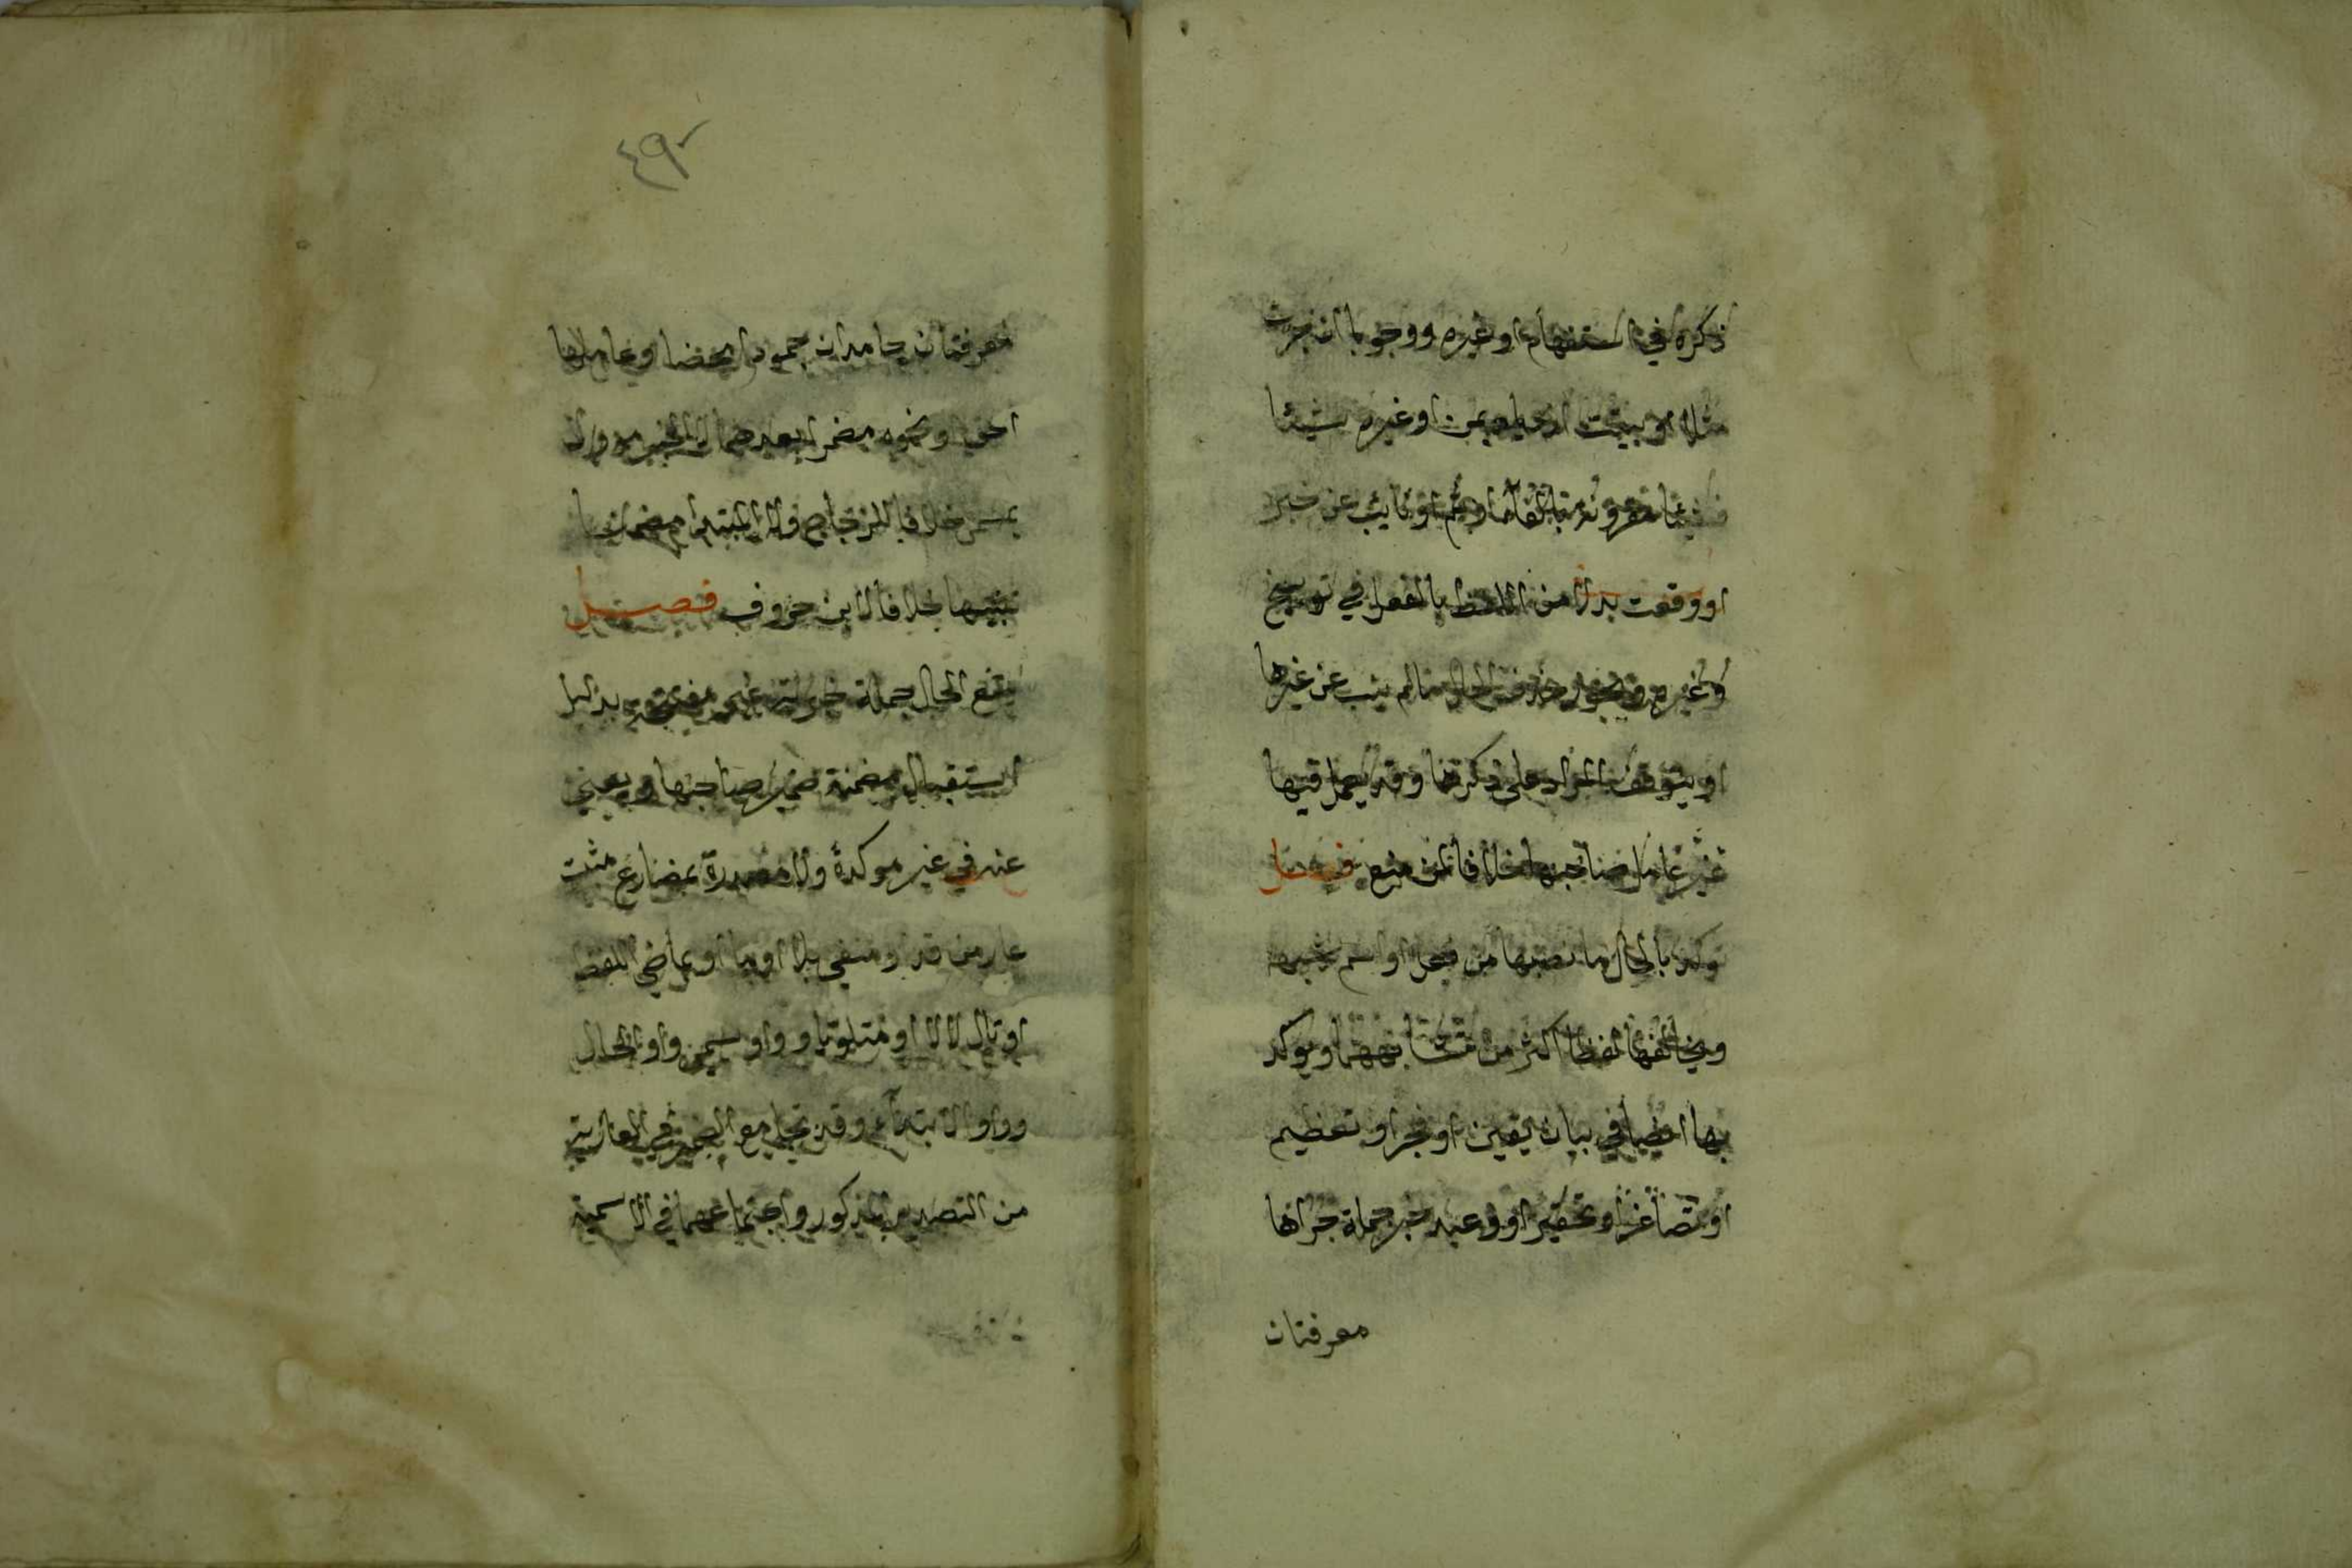 ذكره في استفهام او غيره ووجوبا ان جرت
مثلا او بينت ازدياد ثمن او غيره شيئا
فشيئا مقرونة بالفاء او ثم او نابت عن خبر
او وقعت بدلا من اللفظ بالفعل في توبيخ
وغيره ويجوز حذف الحال ما لم ينب عن غيرها
او يتوقف المراد على ذكرها وقد يعمل فيها
غير عامل صاحبها خلافا لمن منع فصل
يوكد بالحال ما نصبها من فعل او اسم يشبهه
ويخالفها لفظا اكثر من توافقهما ويوكد
بها ايضا في بيان يقين او فخر او تعظيم
او تصاغر او تحقير او وعيد خبر جملة جزاها
معرفتان
٤٩
معرفتان جامدان جمودا محضا وعاملها
احق او نحوه مضمرا بعدهما لا الخبر موولا
بمسمى خلافا للزجاج ولا المبتدا مضمنا
تنبيها خلافا لابن خروف فصل
يقع الحال جملة خبرية غير مفتتحة بدليل
استقبال مضمنة ضمير صاحبها ويغني
عنه في غير موكدة ولا مصدرة بمضارع مثبت
عار من قد او منفي بلا او ما او بماضي اللفظ
او تال لالا او متلو باو واو تسمى واو الحال
وواو الابتداء وقد تجامع الضمير في العارية
من التصدير المذكور واجتماعهما في الاسمية